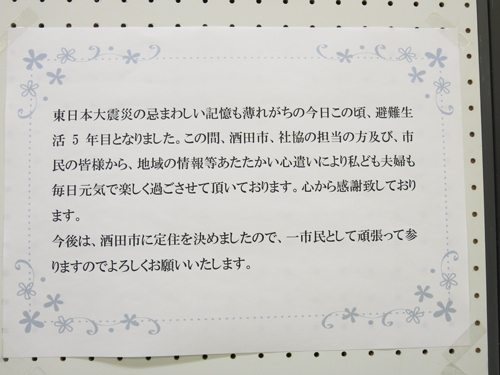 東日本大震災の忌まわしい記憶も薄れがちの今日この頃、避難生
活 5 年目となりました。この間、酒田市、社協の担当の方及び、市
民の皆様から、地域の情報等あたたかい心遣いにより私ども夫婦も
毎日元気で楽しく過ごさせて頂いております。心から感謝致しており
ます。
今後は、酒田市に定住を決めましたので、一市民として頑張って参
りますのでよろしくお願いいたします。